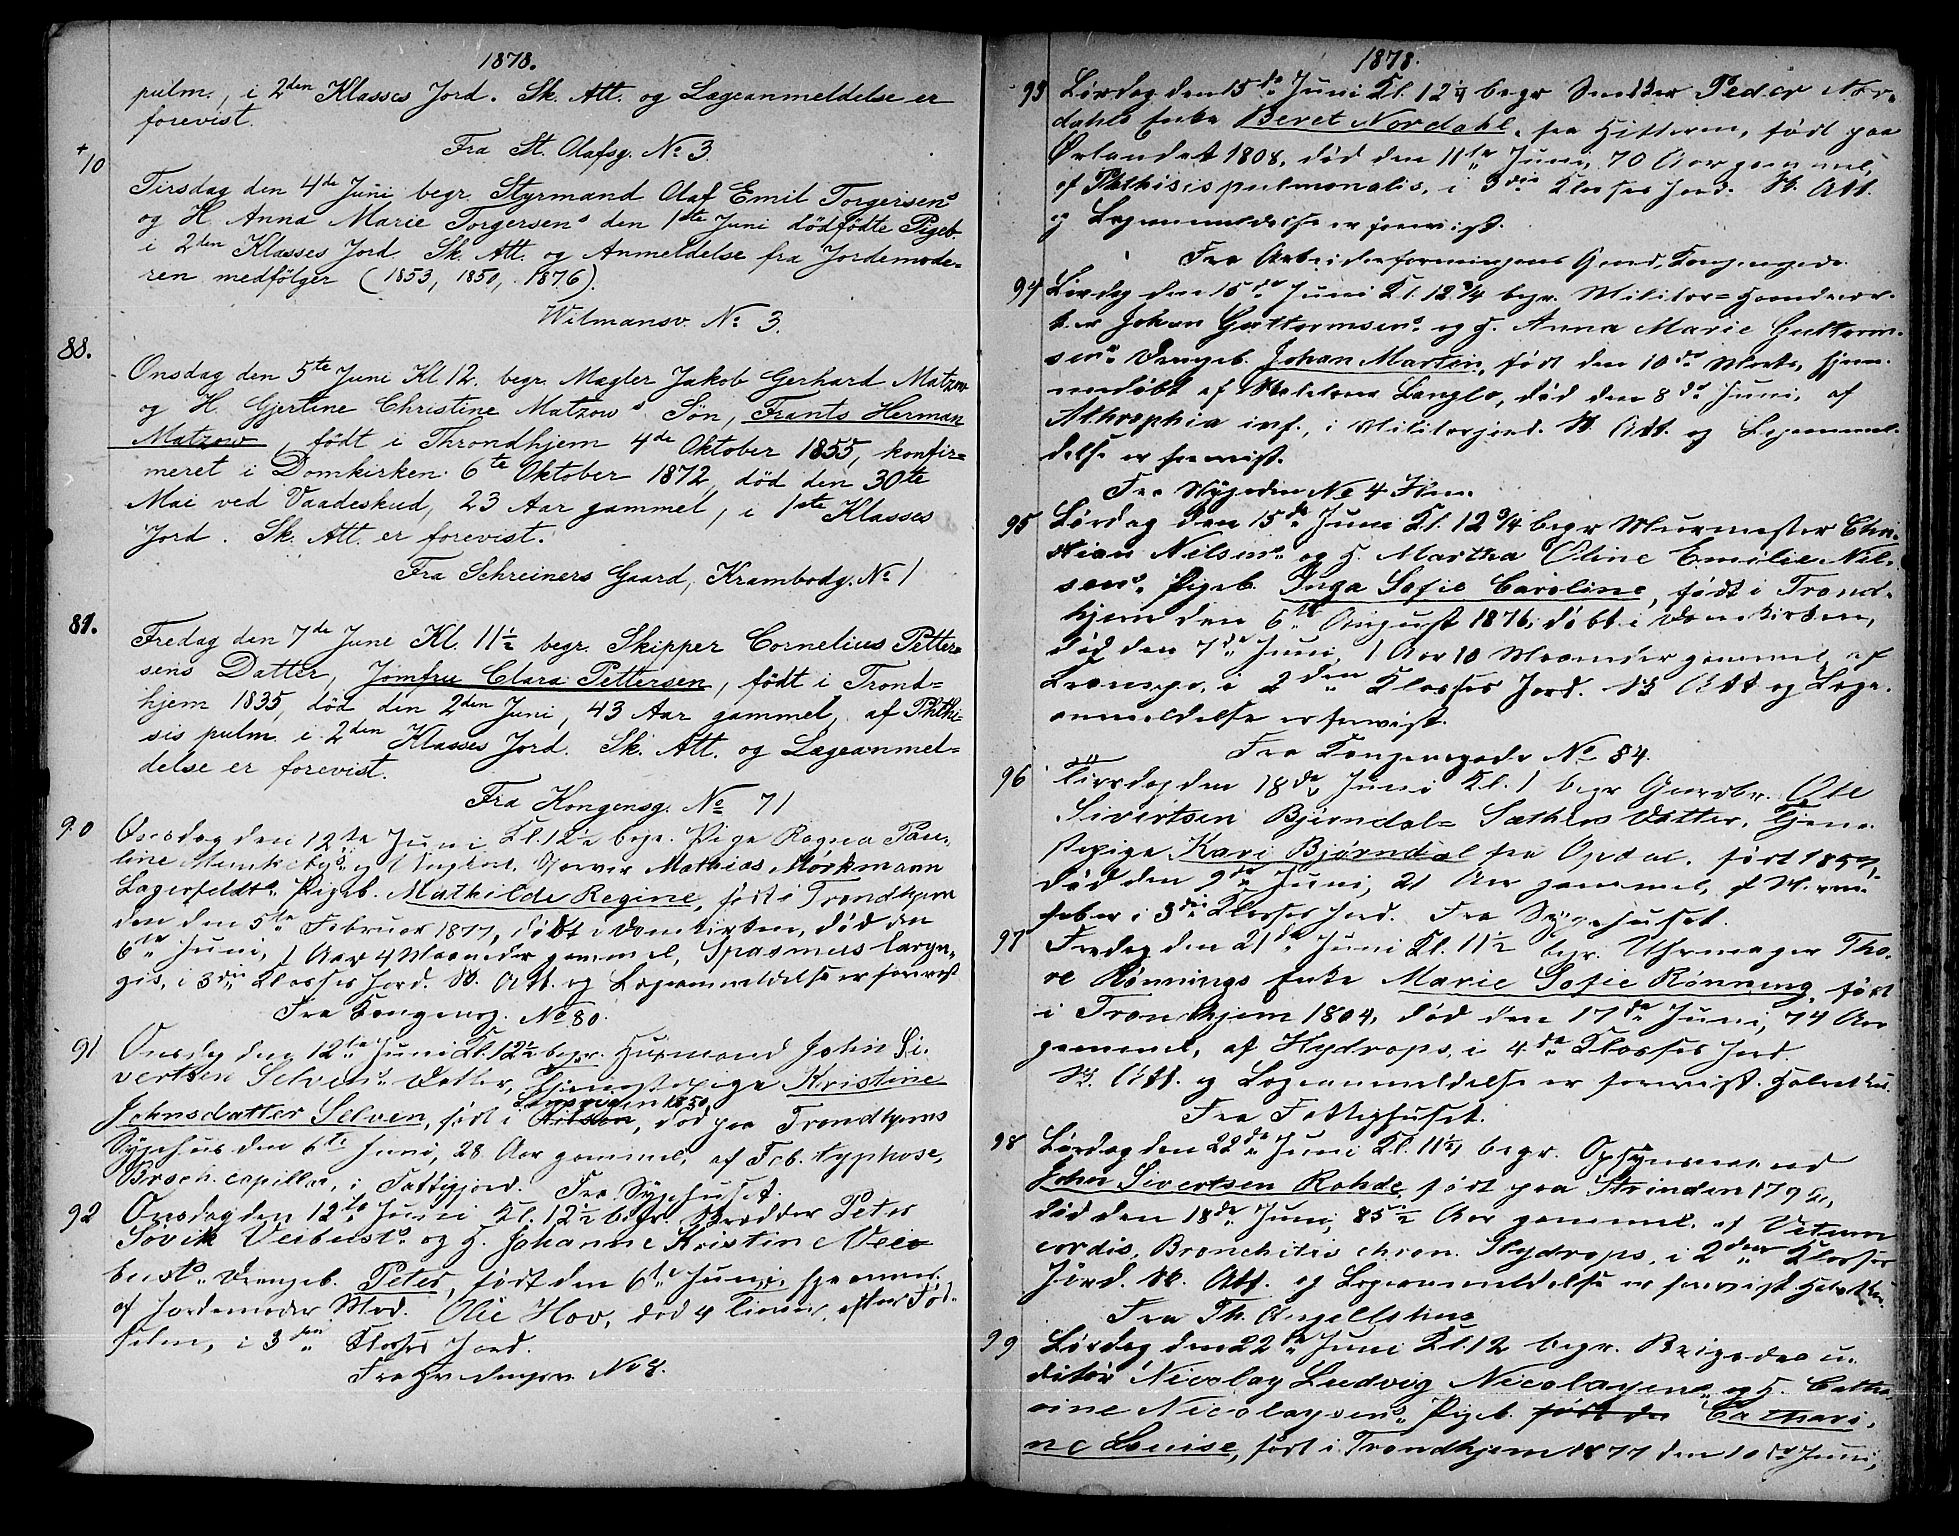 1878.
pulm., i 2den Klasses Jord. Sk. Att. og Lægeanmeldelse er
forevist.
Fra St. Olafsg. No 3
+/10
Tirsdag den 4de Juni begr. Styrmand Olaf Emil Torgersens
og H. Anna Marie Torgersens den 1ste Juni dödfödte Pigeb.
i 2den Klasses Jord. Sk. Att. og Anmeldelse fra Jordemode-
ren medfölger (1853, 1850, 1876).
Wilmansv. No 3.
88.
Onsdag den 5te Juni Kl 12. begr. Mægler Jakob Gerhard Matzow
og H. Gjertine Christine Matzows Sön, Frants Herman
Matzow, födt i Throndhjem 4de Oktober 1855, konfir=
meret i Domkirken 6te Oktober 1872, död den 30te
Mai ved Vaadeskud, 23 Aar gammel, i 1ste Klasses
Jord. Sk. Att. er forevist.
Fra Schreiners Gaard, Krambodg. No 1
89.
Fredag den 7de Juni Kl. 11½ begr. Skipper Cornelius Petter-
sens Datter, Jomfru Clara Pettersen, födt i Trond=
hjem 1835, död den 2den Juni, 43 Aar gammel, af Phthi-
sis pulm. i 2den Klasses Jord. Sk. Att. og Lægeanmel=
delse er forevist.
Fra Kongensg. No 71
90
Onsdag den 12te Juni Kl. 12½ begr. Pige Ragna Pau-
line og Mathias Morkmann
Lagerfeldts Pigeb. Mathilde Regine, födt i Trondhjem
den 5te Februar 1877, döbt i Domkirken, död den
6te Juni, 1 Aar 4 Maaneder gammel, Spasmus laryn-
gis, i 3die Klasses Jord. Sk. Att. og Lægeanmeldelse er forevist
Fra Kongensg. No 80.
91
Onsdag den 12te Juni Kl. 12½ begr. Husmand John Si-
vertsen Selvens Datter, Tjenestepige Kristine
Johnsdatter Selven, födt i 1850, död paa Trondhjems
Sygehus den 6te Juni, 28 Aar gammel, af Feb. typhose,
Bronch. capillar, i Fattigjord. Fra Sygehuset.
92
Onsdag den 12te Juni Kl. 12½ begr. Peter
Sövik og H. Johanne Kristin
Drengeb. Peter, födt den 6te Juni, hjemmed.
af Jordemoder Mad. Olie Hov, död 4 Timer efter Föd-
selen, i 3die Klasses Jord.
No 8.
1878.
93
Lördag den 15de Juni Kl. 12¼ begr Snedker Peder Nor-
dahls Enke Beret Nordahl, fra Hitteren, födt paa
Örlandet 1808, död den 11te Juni, 70 Aar gammel,
af Phthisis pulmonalis, i 3die Klasses Jord. Sk. Att.
og Lægeanmeldelse er forevist.
Fra Arbeiderforeningens Gaard, Kongensgade
94
Lördag den 15de Juni Kl. 12¾ begr. Militær=Haandvær-
ker Johan Guttormsens og H. Anna Marie Guttorm-
sens Drengeb. Johan Martin, födt den 10de Marts, hjem-
medöbt af Langlo, död den 8de Juni, af
Athrophia inf., i Militærjord. Sk. Att. og Lægeanmel-
delse er forevist.
No 4
95
Lördag den 15de Juni Kl. 12¾ begr Murmester Chri-
stian Nilsens og H. Martha Oline Emilie Nil-
sens Pigeb. Inga Sofie Caroline, födt i Trond-
hjem den 6te August 1876, döbt i Domkirken,
död den 7de Juni, 1 Aar 10 Maaneder gammel, af
i 2den Klasses Jord. Sk Att og Læge-
anmeldelse er forevist.
Fra Kongensgade No 84.
96
Tirsdag den 18de Juni Kl. 1 begr Gaardbr. Ole
Sivertsen Bjerndal= Sæthers Datter, Tjene-
stepige Kari Bjørndal fra Opdal, födt 1857,
död den 9de Juni, 21 Aar gammel, af
feber i 3die Klasses Jord. Fra Sygehuset.
97
Fredag den 21de Juni Kl. 11½ begr. Uhrmager Tho-
re Rønnings Enke Marie Sofie Rønning, födt
i Trondhjem 1804, död den 17de Juni, 74 Aar
gammel, af Hydrops, i 4de Klasses Jord.
Sk. Att. og Lægeanmeldelse er forevist.
Fra Fattighuset.
98
Lördag den 22de Juni Kl. 11½ begr. Opsynsmand
John Sivertsen Rohde, födt paa Strinden
död den 18de Juni, 85½ Aar gammel, af Vitium
cordis, Bronchitis chron. Hydrops, i 2den Klasses
Jord. Sk. Att. og Lægeanmeldelse er forevist
Fra Th. Angells Hus
99
Lördag den 22de Juni Kl. 12 begr. Brigadeau-
ditör Nicolay Ludvig Nicolaysens og H. Catha-
rine Nicolaysens Pigeb. födt den Cathari-
ne Louise, födt i Trondhjem 1877 den 10de Juni,